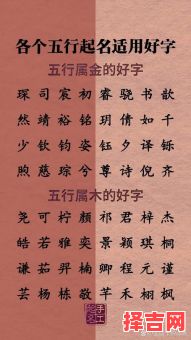 各个五行起名适用好字
五行属金的好字
琛 司 宸 初 睿 骁 书 歆
然 靖 裕 铭 玥 倩 如 千
少 钦 钧 姿 钰 夕 译 铄
煦 慈 琮 兮 尊 诗 倪 齐
五行属木的好字
尧 可 柠 颜 祁 君 梓 杰
皓 若 雅 奕 景 颖 琪 桐
谦 茹 羿 楠 卿 程 元 谨
芸 杨 栋 敬 芊 禾 栩 枫
择吉网